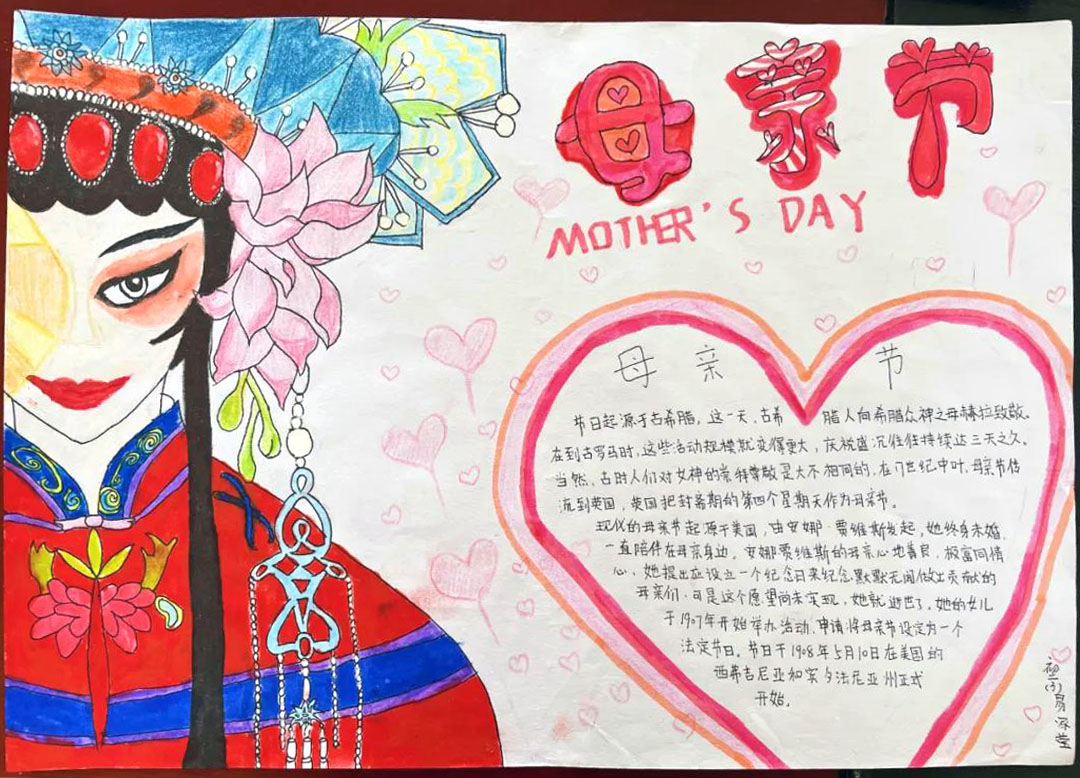 母亲节
MOTHER'S DAY
母 亲 节
节日起源于古希腊，这一天，古希腊人向希腊众神之母赫拉致敬。
在到古罗马时，这些活动规模就变得更大，庆祝盛况往往持续达三天之久。
当然，古时人们对女神的崇拜尊敬是大不相同的，在17世纪中叶，母亲节传
流到英国，英国把封斋期的第四个星期天作为母亲节。
现代的母亲节起源于美国，由安娜·贾维斯发起，她终身未婚，
一直陪伴在母亲身边，安娜贾维斯的母亲心地善良，极富同情
心，她提出应设立一个纪念日来纪念默默无闻做出贡献的
母亲们，可是这个愿望尚未实现，她就逝世了，她的女儿
于1907年开始举办活动，申请将母亲节设定为一个
法定节日。节日于1908年5月10日在美国的
西弗吉尼亚和宾夕法尼亚州正式
开始。
初二(3)易